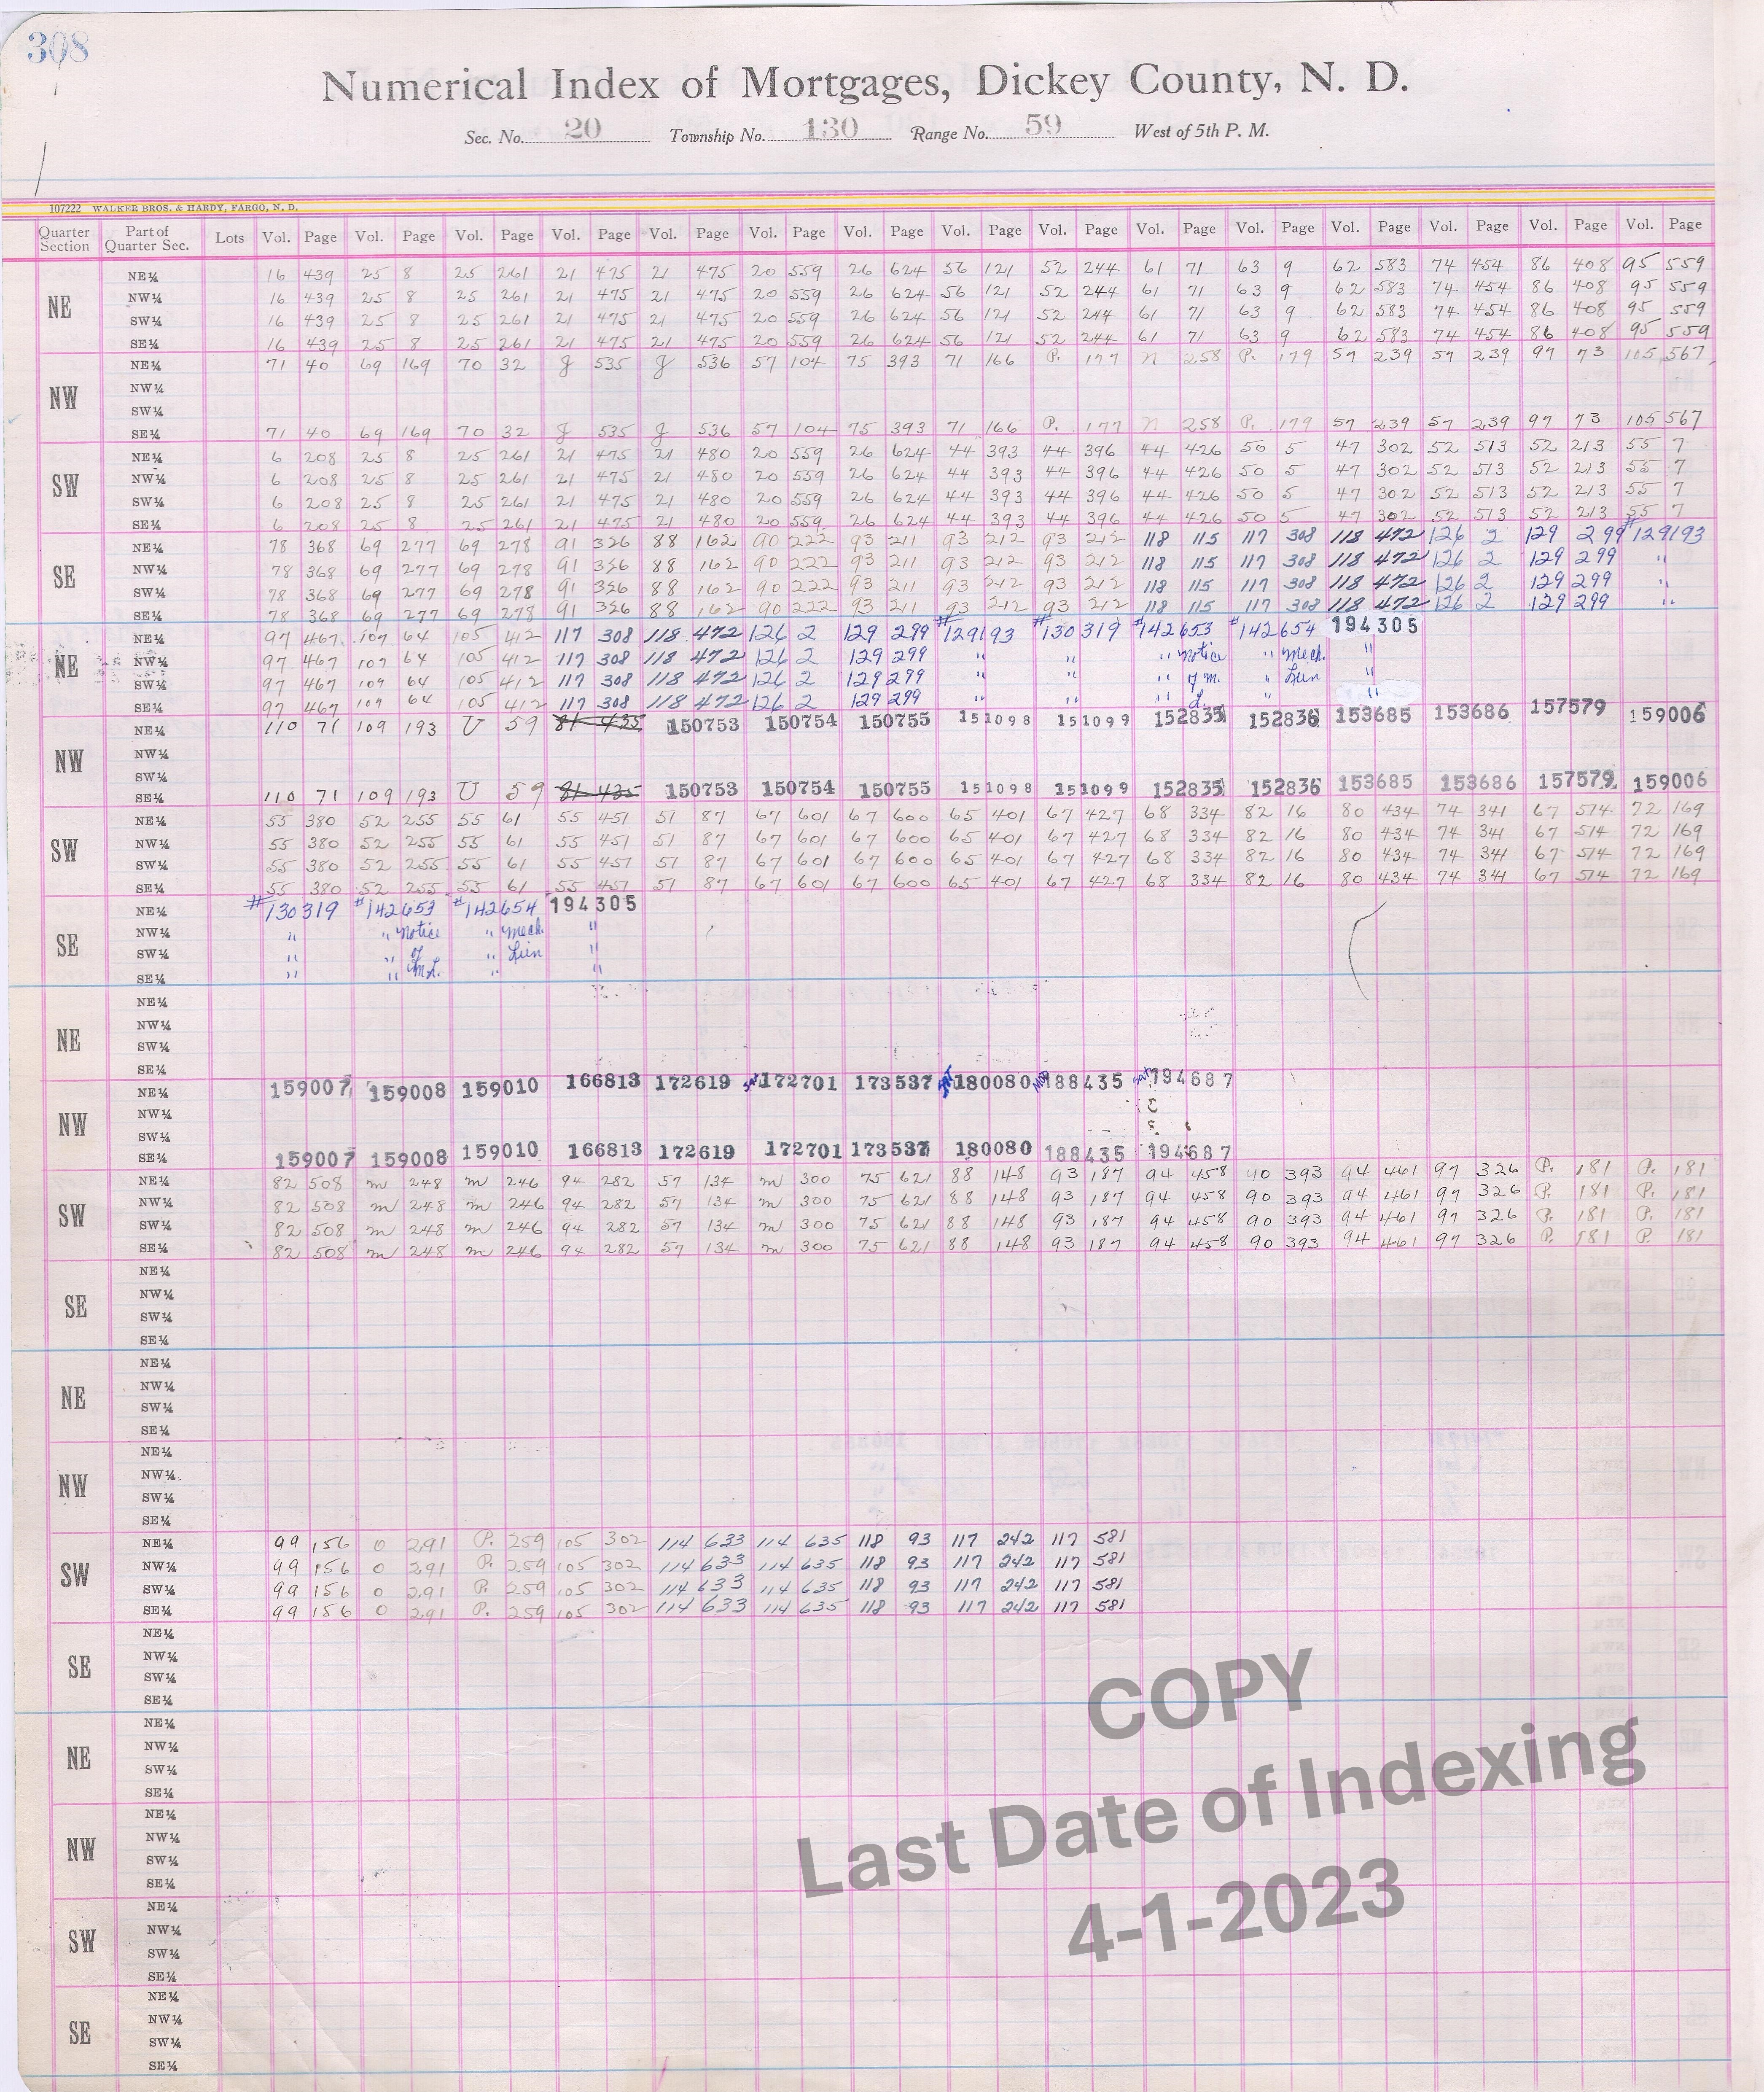 308
Numerical Index of Mortgages, Dickey County, N. D.
Sec. No. 20 Township No. 130 Range No. 59 West of 5th P. M.
107222 WALKER BROS. & HARDY, FARGO, N. D.
Quarter Section Part of Quarter Sec. Lots Vol. Page Vol. Page Vol. Page Vol. Page Vol. Page Vol. Page Vol. Page Vol. Page Vol. Page Vol. Page Vol. Page Vol. Page Vol. Page Vol. Page Vol. Page
NE
NE¼ 16 439 25 8 25 261 21 475 21 475 20 559 26 624 56 121 52 244 61 71 63 9 62 583 74 454 86 408 95 559
NW¼ 16 439 25 8 25 261 21 475 21 475 20 559 26 624 56 121 52 244 61 71 63 9 62 583 74 454 86 408 95 559
SW¼ 16 439 25 8 25 261 21 475 21 475 20 559 26 624 56 121 52 244 61 71 63 9 62 583 74 454 86 408 95 559
SE¼ 16 439 25 8 25 261 21 475 21 475 20 559 26 624 56 121 52 244 61 71 63 9 62 583 74 454 86 408 95 559
NW
NE¼ 71 40 69 169 70 32 J 535 J 536 57 104 75 393 71 166 P. 177 N 258 P. 179 57 239 57 239 97 73 105 567
NW¼
SW¼
SE¼ 71 40 69 169 70 32 J 535 J 536 57 104 75 393 71 166 P. 177 N 258 P. 179 57 239 57 239 97 73 105 567
SW
NE¼ 6 208 25 8 25 261 21 475 21 480 20 559 26 624 44 393 44 396 44 426 50 5 47 302 52 513 52 213 55 7
NW¼ 6 208 25 8 25 261 21 475 21 480 20 559 26 624 44 393 44 396 44 426 50 5 47 302 52 513 52 213 55 7
SW¼ 6 208 25 8 25 261 21 475 21 480 20 559 26 624 44 393 44 396 44 426 50 5 47 302 52 513 52 213 55 7
SE¼ 6 208 25 8 25 261 21 475 21 480 20 559 26 624 44 393 44 396 44 426 50 5 47 302 52 513 52 213 55 7
SE
NE¼ 78 368 69 277 69 278 91 326 88 162 90 222 93 211 93 212 93 212 118 115 117 308 118 472 126 2 129 299 #129193
NW¼ 78 368 69 277 69 278 91 326 88 162 90 222 93 211 93 212 93 212 118 115 117 308 118 472 126 2 129 299 "
SW¼ 78 368 69 277 69 278 91 326 88 162 90 222 93 211 93 212 93 212 118 115 117 308 118 472 126 2 129 299 "
SE¼ 78 368 69 277 69 278 91 326 88 162 90 222 93 211 93 212 93 212 118 115 117 308 118 472 126 2 129 299 "
NE
NE¼ 97 467 107 64 105 412 117 308 118 472 126 2 129 299 #129193 #130319 #142653 #142654 194305
NW¼ 97 467 107 64 105 412 117 308 118 472 126 2 129 299 " " " Notice " Mech. "
SW¼ 97 467 109 64 105 412 117 308 118 472 126 2 129 299 " " " of M. " Lien "
SE¼ 97 467 109 64 105 412 117 308 118 472 126 2 129 299 " " " L. " "
NW
NE¼ 110 71 109 193 U 59 81 435 150753 150754 150755 151098 151099 152835 152836 153685 153686 157579 159006
NW¼
SW¼
SE¼ 110 71 109 193 U 59 81 435 150753 150754 150755 151098 151099 152835 152836 153685 153686 157579 159006
SW
NE¼ 55 380 52 255 55 61 55 451 51 87 67 601 67 600 65 401 67 427 68 334 82 16 80 434 74 341 67 514 72 169
NW¼ 55 380 52 255 55 61 55 451 51 87 67 601 67 600 65 401 67 427 68 334 82 16 80 434 74 341 67 514 72 169
SW¼ 55 380 52 255 55 61 55 451 51 87 67 601 67 600 65 401 67 427 68 334 82 16 80 434 74 341 67 514 72 169
SE¼ 55 380 52 255 55 61 55 451 51 87 67 601 67 600 65 401 67 427 68 334 82 16 80 434 74 341 67 514 72 169
SE
NE¼ #130319 #142653 #142654 194305
NW¼ " " Notice " Mech. "
SW¼ " " of " Lien "
SE¼ " " M.L. " "
NE
NE¼
NW¼
SW¼
SE¼
NW
NE¼ 159007 159008 159010 166813 172619 Sat 172701 173537 Sat 180080 Mod 188435 Sat 194687
NW¼
SW¼
SE¼ 159007 159008 159010 166813 172619 172701 173537 180080 188435 194687
SW
NE¼ 82 508 m 248 m 246 94 282 57 134 m 300 75 621 88 148 93 187 94 458 90 393 94 461 97 326 P. 181 P. 181
NW¼ 82 508 m 248 m 246 94 282 57 134 m 300 75 621 88 148 93 187 94 458 90 393 94 461 97 326 P. 181 P. 181
SW¼ 82 508 m 248 m 246 94 282 57 134 m 300 75 621 88 148 93 187 94 458 90 393 94 461 97 326 P. 181 P. 181
SE¼ 82 508 m 248 m 246 94 282 57 134 m 300 75 621 88 148 93 187 94 458 90 393 94 461 97 326 P. 181 P. 181
SE
NE¼
NW¼
SW¼
SE¼
NE
NE¼
NW¼
SW¼
SE¼
NW
NE¼
NW¼
SW¼
SE¼
SW
NE¼ 99 156 O 291 P. 259 105 302 114 633 114 635 118 93 117 242 117 581
NW¼ 99 156 O 291 P. 259 105 302 114 633 114 635 118 93 117 242 117 581
SW¼ 99 156 O 291 P. 259 105 302 114 633 114 635 118 93 117 242 117 581
SE¼ 99 156 O 291 P. 259 105 302 114 633 114 635 118 93 117 242 117 581
SE
NE¼
NW¼
SW¼
SE¼
NE
NE¼
NW¼
SW¼
SE¼
NW
NE¼
NW¼
SW¼
SE¼
SW
NE¼
NW¼
SW¼
SE¼
SE
NE¼
NW¼
SW¼
SE¼
COPY
Last Date of Indexing
4-1-2023